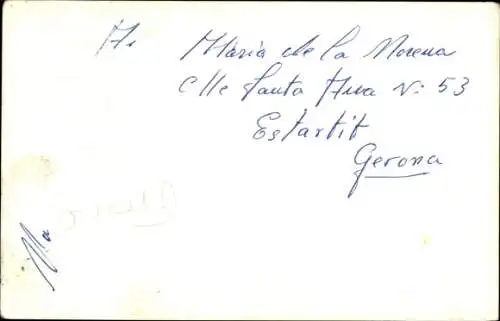 A. Mària de la Morena
Clle Santa Ana Nº 53
Estartit
Gerona